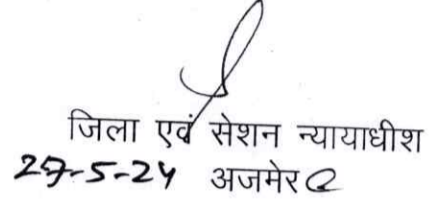 जिला एवं सेशन न्यायाधीश
27-5-24 अजमेर